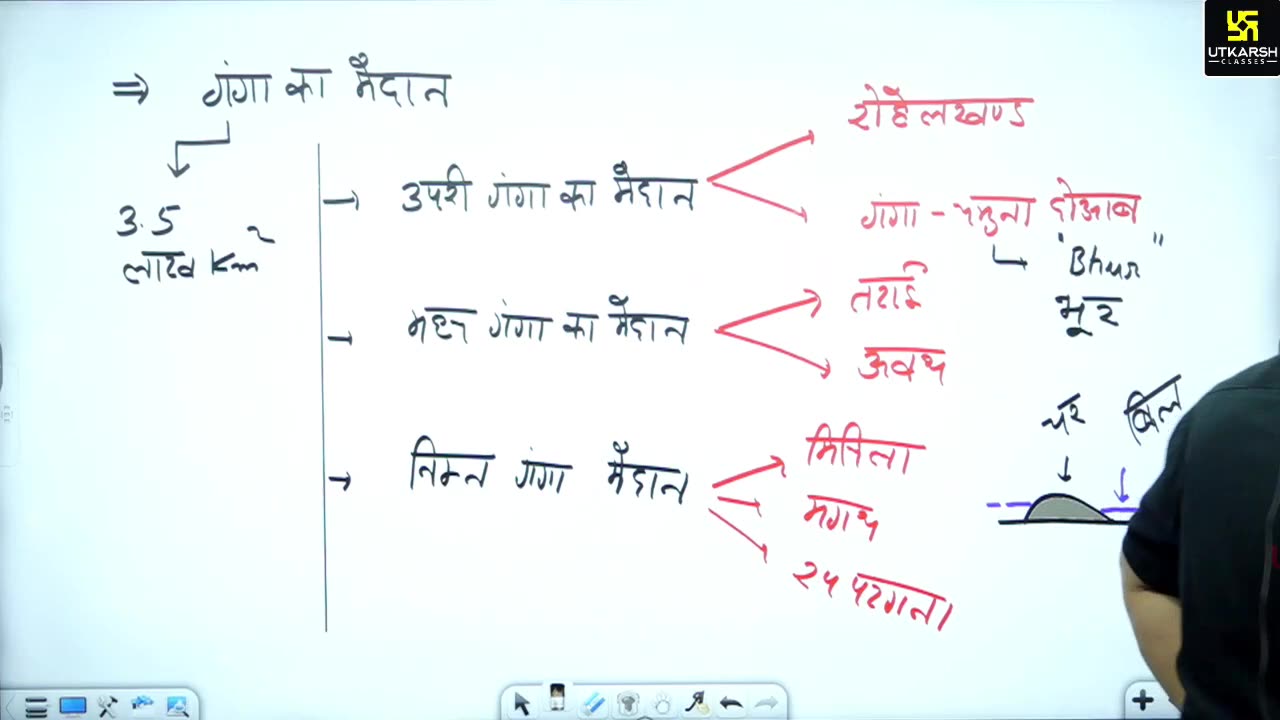 UTKARSH
CLASSES
⇒ गंगा का मैदान
3.5
लाख Km²
→ उपरी गंगा का मैदान
रोहेलखण्ड
गंगा - यमुना दोआब
"Bhur"
भूर
→ मध्य गंगा का मैदान
तराई
अवध
→ निम्न गंगा मैदान
मिथिला
मगध
२५ परगना
चर
बिल